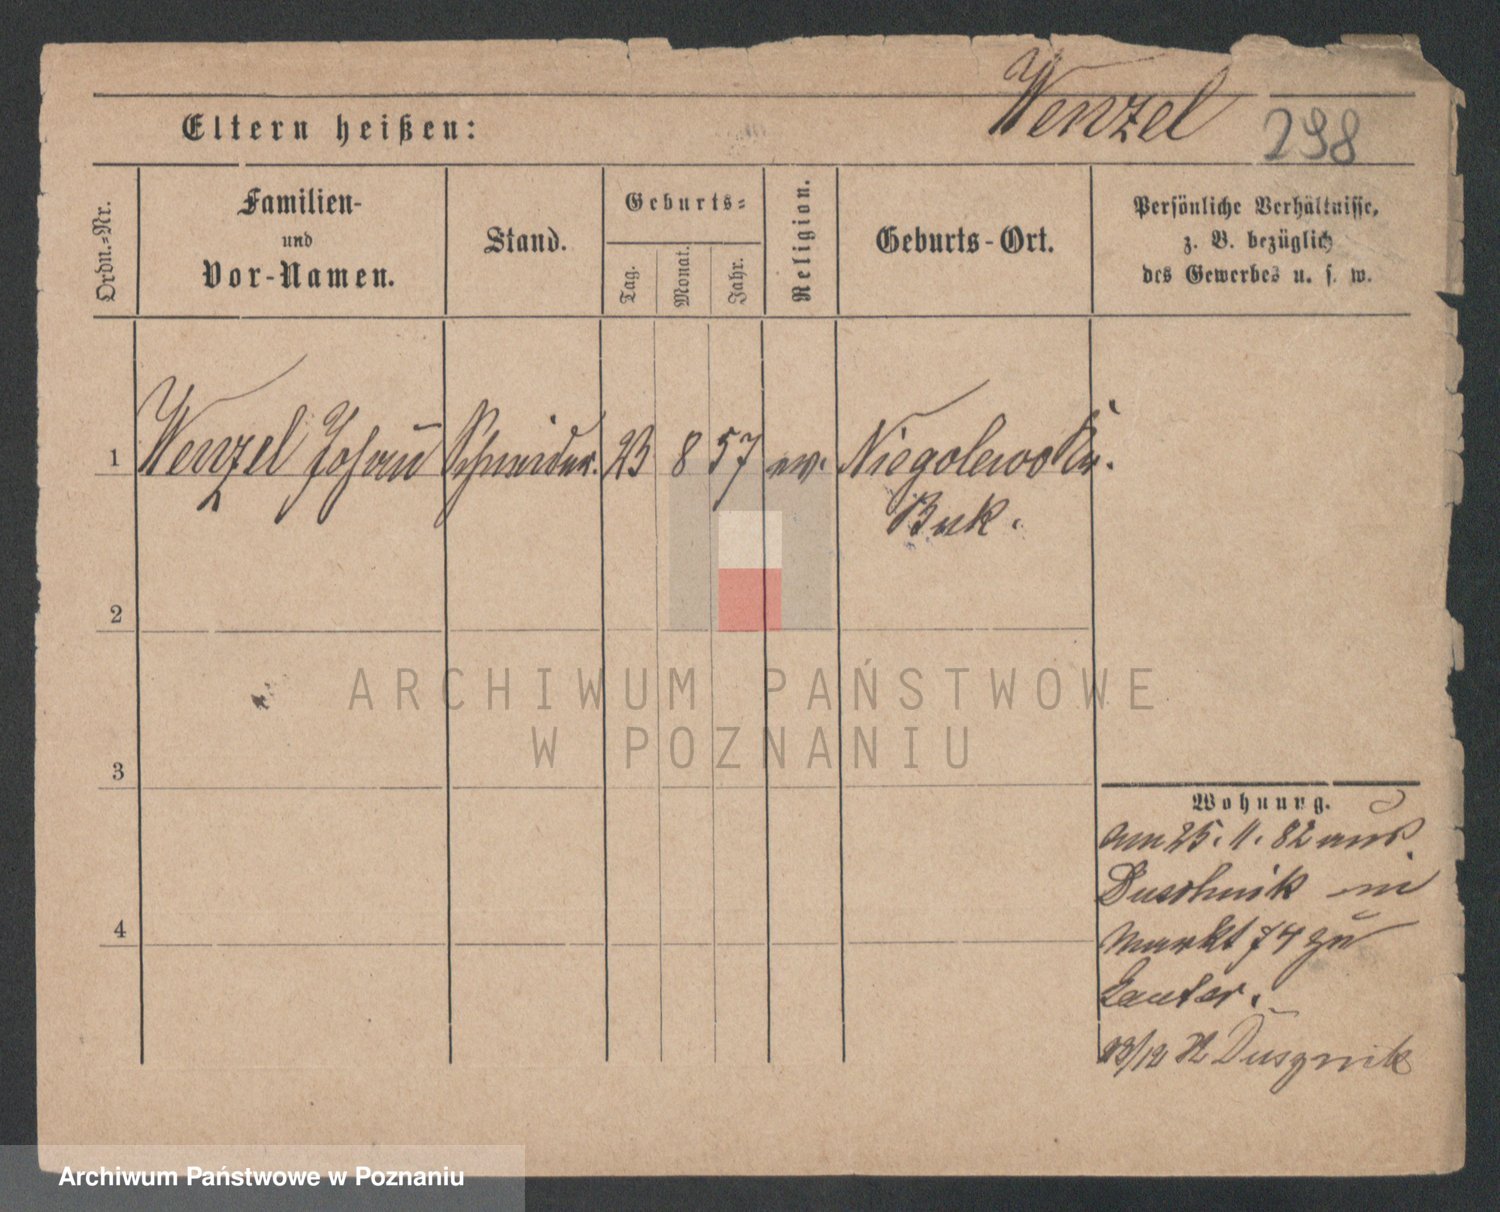 Wenzel 298
Eltern heißen:
Ordn.-Nr.
Familien-
und
Vor-Namen.
Stand.
Geburts-
Tag.
Monat.
Jahr.
Religion.
Geburts-Ort.
Persönliche Verhältnisse,
z. B. bezüglich
des Gewerbes u. s. w.
1 Wenzel Johann Schneider. 23 8 57 ev. Niegolewo Kr.
Buk.
2
3
4
Wohnung.
am 25. 11. 82 aus
Duschnik in
Markt 74 zu
23/12 82 Dusznik
ARCHIWUM PAŃSTWOWE
W POZNANIU
Archiwum Państwowe w Poznaniu